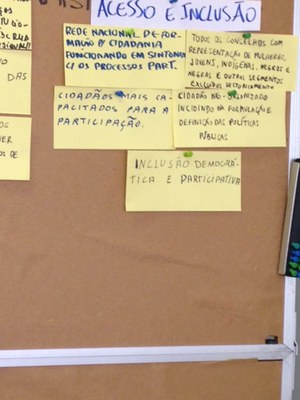 ACESSO E INCLUSÃO
REDE NACIONAL DE FOR-
MAÇÃO P/ CIDADANIA
FUNCIONANDO EM SINTONIA
C/ OS PROCESSOS PART.
TODOS OS CONSELHOS COM
REPRESENTAÇÃO DE MULHERES,
JOVENS, INDÍGENAS, NEGROS E
NEGRAS E OUTROS SEGMENTOS
EXCLUÍDOS HISTORICAMENTE
CIDADÃOS MAIS CA-
PACITADOS PARA A
PARTICIPAÇÃO.
CIDADÃO NÃO-ORGANIZADO
INCIDINDO NA FORMULAÇÃO E
DEFINIÇÃO DAS POLÍTICAS
PÚBLICAS
INCLUSÃO DEMOCRÁ-
TICA E PARTICIPATIVA
DAS
OS
OS DE